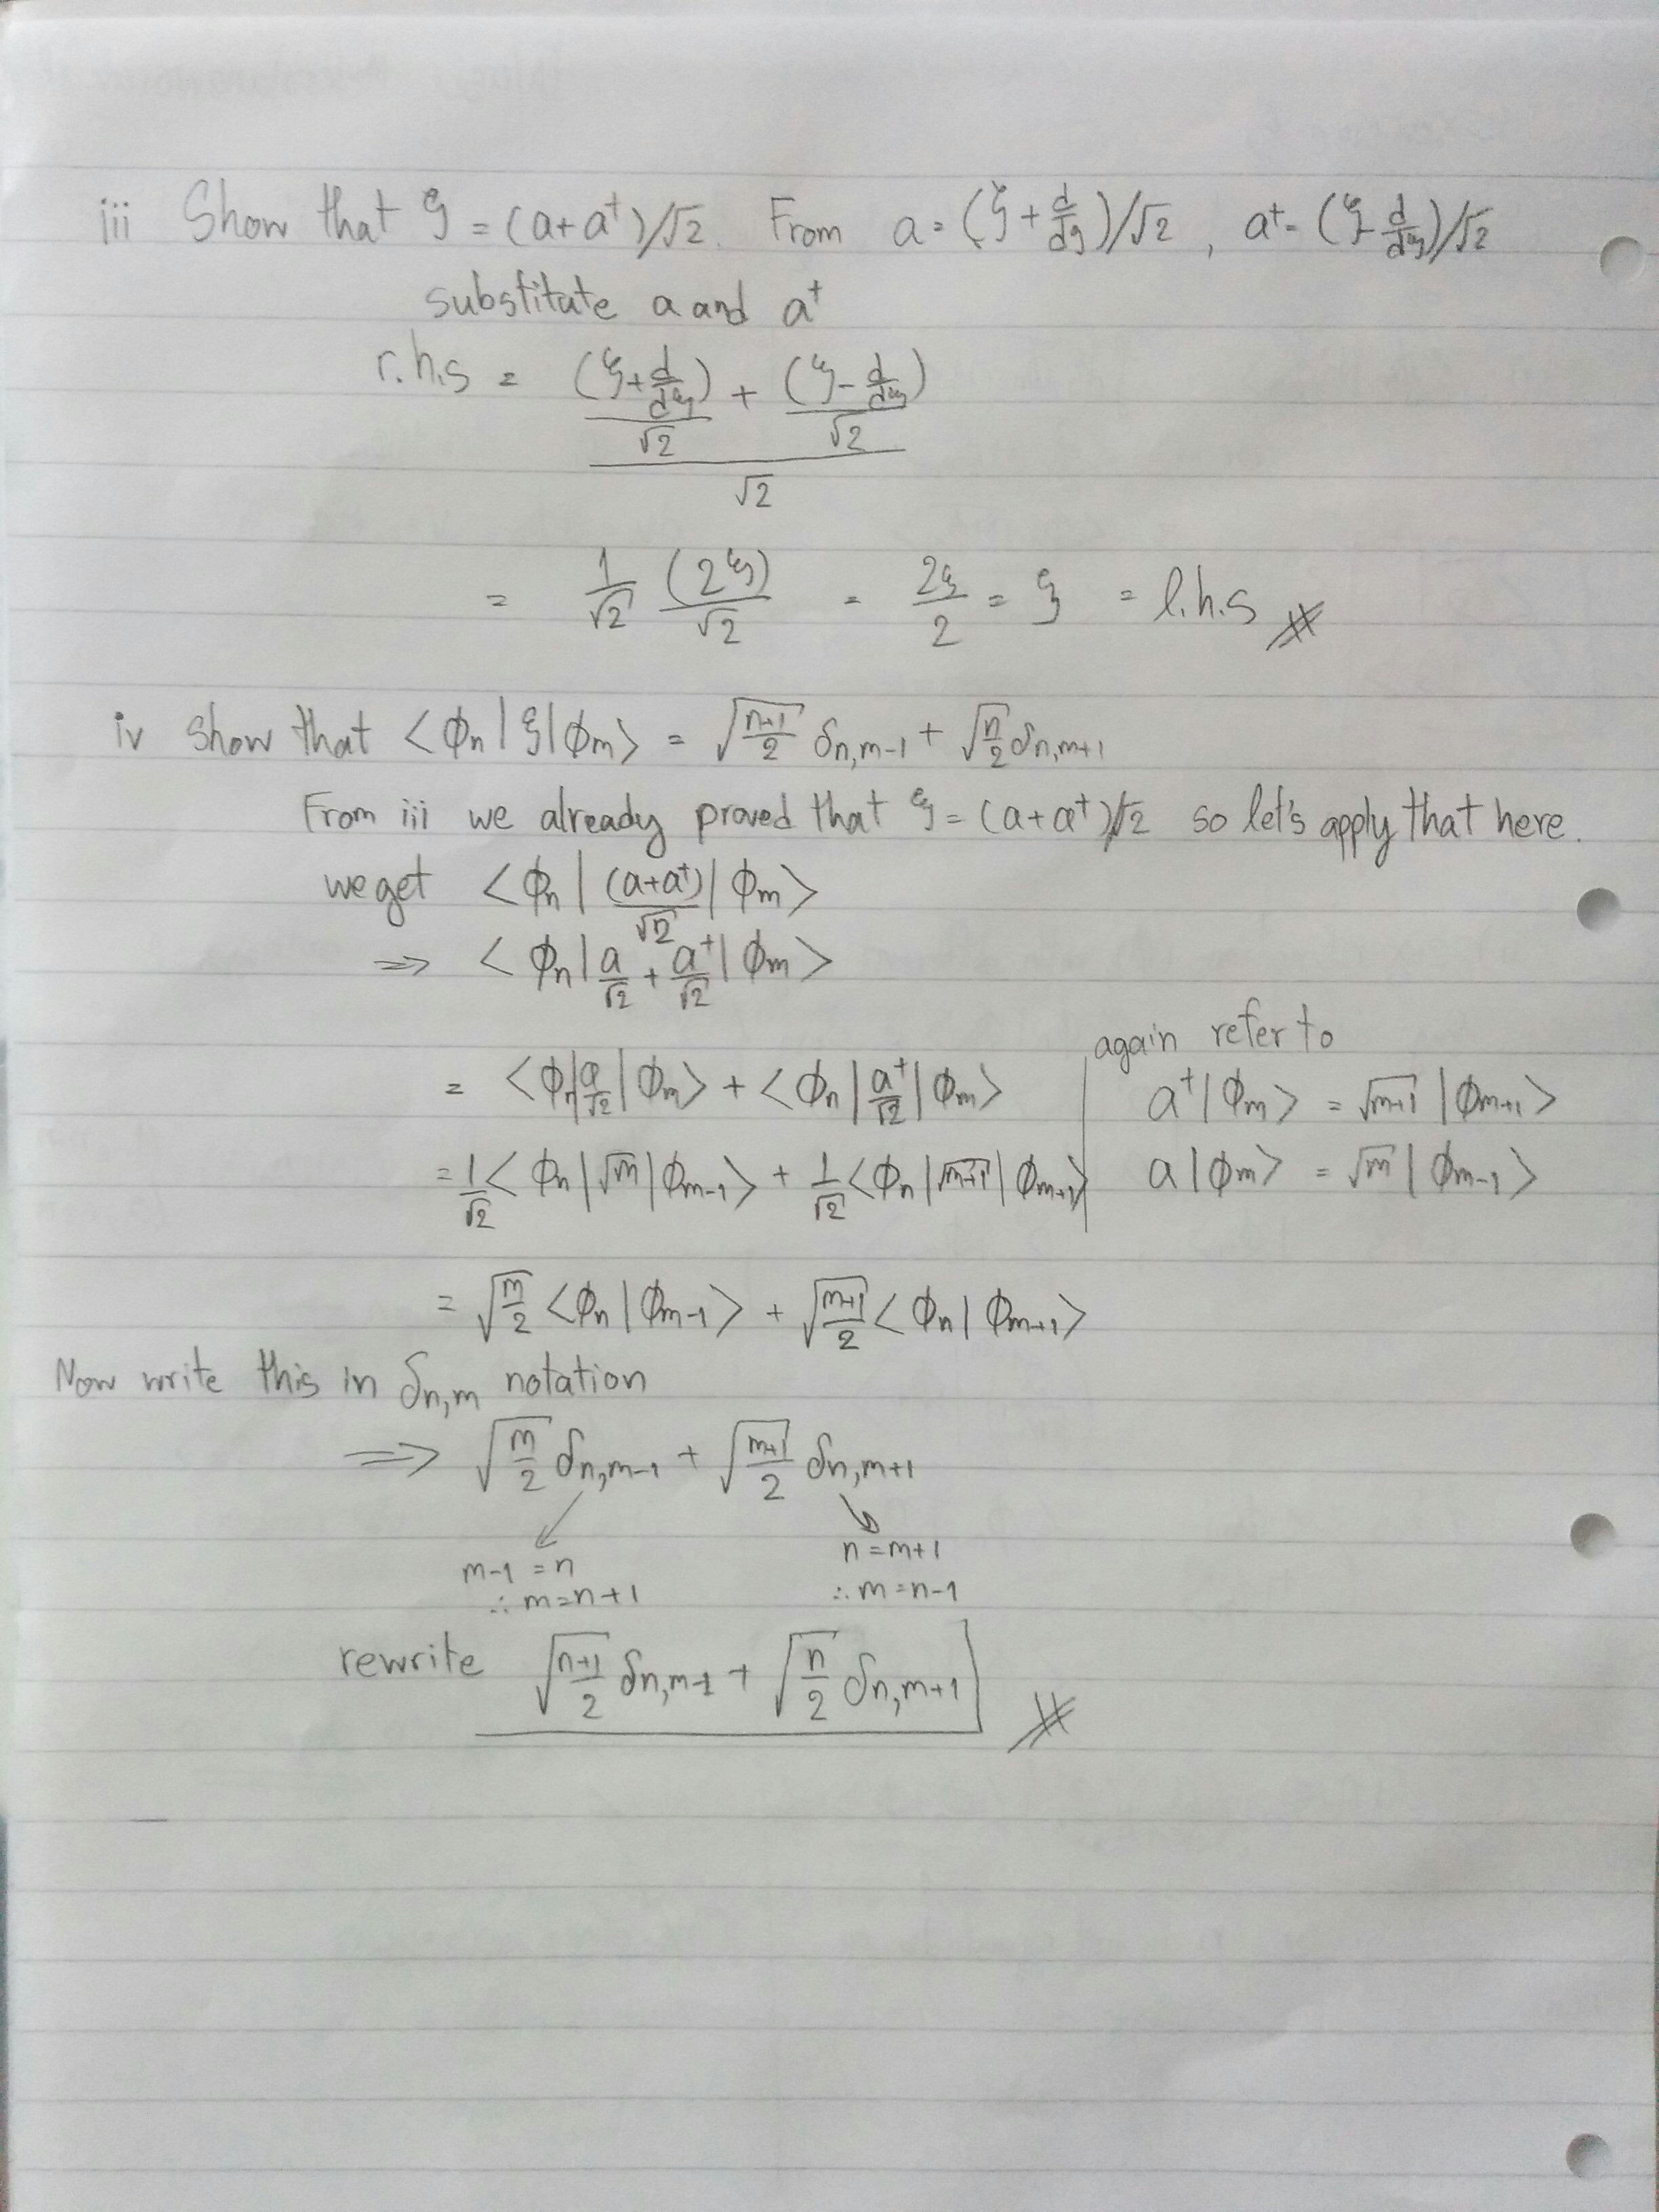 iii Show that ξ = (a+a†)/√2. From a = (ξ + d/dξ)/√2, a† = (ξ - d/dξ)/√2
substitute a and a†
r.h.s = ((ξ + d/dξ)/√2 + (ξ - d/dξ)/√2)/√2
= 1/√2 (2ξ)/√2 = 2ξ/2 = ξ = l.h.s
iv show that <ϕn|ξ|ϕm> = √((n+1)/2) δn,m-1 + √(n/2) δn,m+1
From iii we already proved that ξ = (a+a†)/√2 so let's apply that here.
we get <ϕn| (a+a†)/√2 |ϕm>
⇒ <ϕn| a/√2 + a†/√2 |ϕm>
= <ϕn| a/√2 |ϕm> + <ϕn| a†/√2 |ϕm>
again refer to
a†|ϕm> = √(m+1) |ϕm+1>
= 1/√2 <ϕn|√m|ϕm-1> + 1/√2 <ϕn|√(m+1)|ϕm+1>
a|ϕm> = √m |ϕm-1>
= √(m/2) <ϕn|ϕm-1> + √((m+1)/2) <ϕn|ϕm+1>
Now write this in δn,m notation
⇒ √(m/2) δn,m-1 + √((m+1)/2) δn,m+1
m-1 = n
∴ m = n+1
n = m+1
∴ m = n-1
rewrite √((n+1)/2) δn,m-1 + √(n/2) δn,m+1